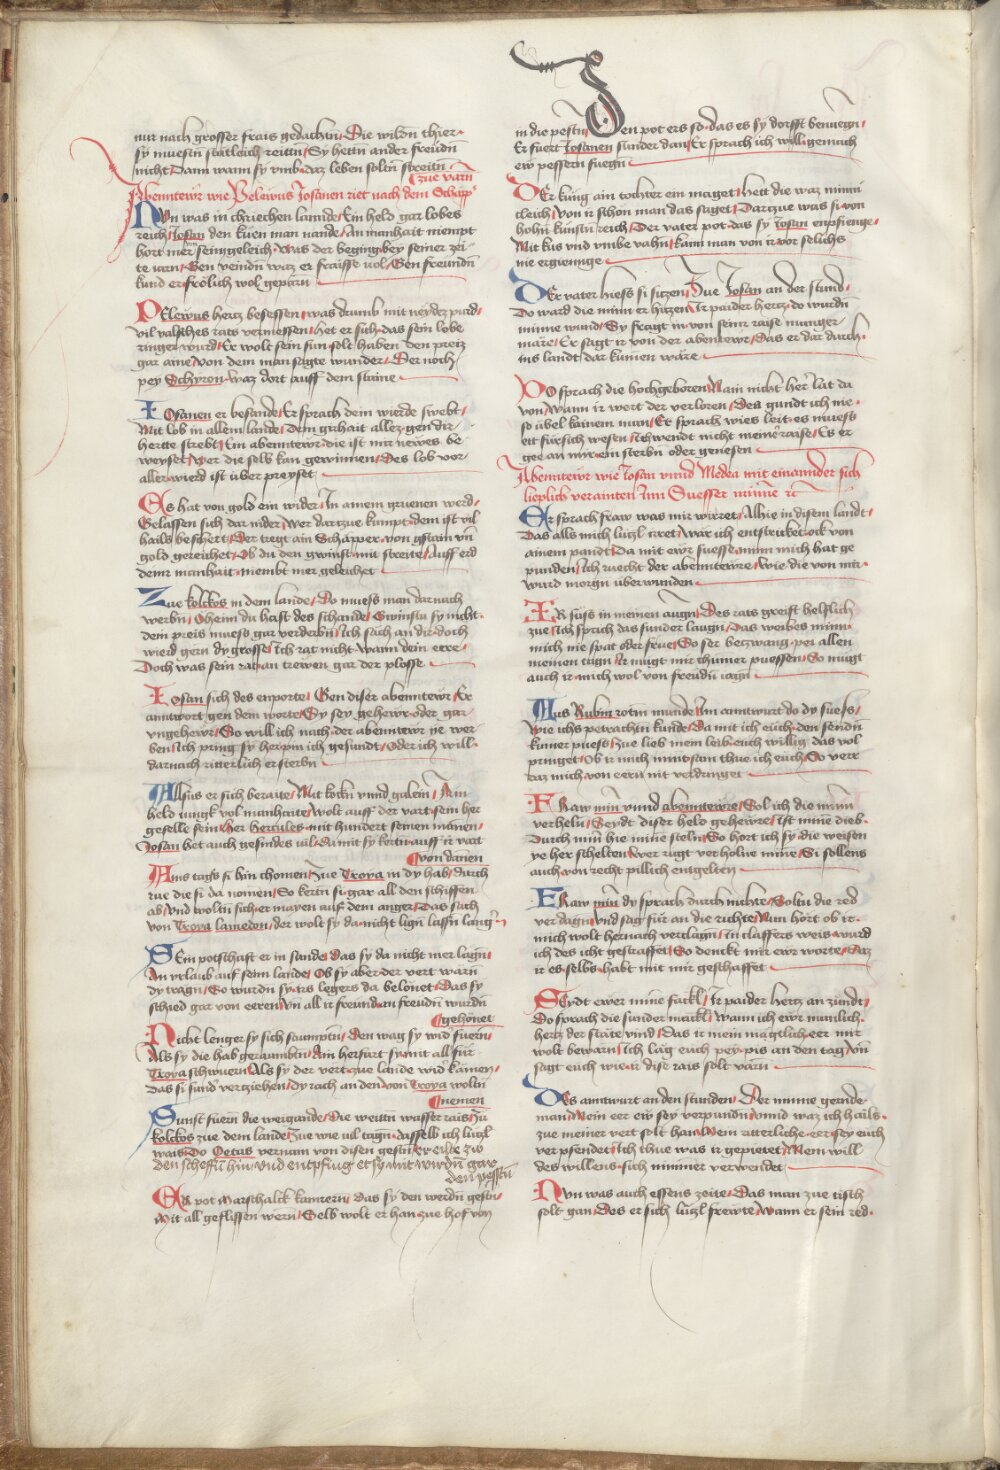 nur nach grosser frais gedachtn / Die wildn thier ·
sy muestn statleich reittn / Sy hettn ander freudn
nicht Dann wann sy vmb daz leben soltn streitn
zue varn
Abenntewr wie Pelewus Josanen riet nach dem Schapp
NVn was in chriechen lannde / Ein held gar lobes
reich / Josan den kuen man nande / An manhait niempt
hort mer sein geleich / Was der beging bey seiner zei
te iarn / Gen veindn waz er fraisse vol / Gen freundn
kund er frölich wol geparn
PElewus hertz besessen / was drumb mit neydez pard /
vil valsches rats vermessen / het er sich / das sein lobe
ringer wurd / Er wolt sein sun solt haben den preiz
gar aine / von dem man sagte wunder / Der noch
pey Schyron waz dort auff dem staine
IOsanen er besande / Er sprach dein wierde swebt /
Mit lob in allem lande / dein manhait allez gen dir
hertte strebt / Ein abenntewr die ist mir newes be
weyset / wer die selb kan gewinnen / Des lob vor
aller wierd ist über preyset
Es hat von gold ein wider / In ainem gruenen werd /
Gelassen sich dar nider / wer dartzue kumpt dem ist vil
hails beschert / Der tregt ain Schapper von gstain vn
gold gereichet / Ob du den gwinst mit streite / Auff erd
deinr manhait niembt mer geleichet
Zue kolckos in dem lande / Do muess man darnach
werbn / O hein du hast des schande / Gwinstu sy nicht ·
dein preis muess gar verderbn / Ich sach an dir doch
wierd gern dy grosse / Ich rat nicht wann dein eere /
Doch was sein rat an trewen gar der plosse
IOsan sich des enporte / Gen diser abenntewr / Er
anntwort gen dem worte / Sy sey gehewr oder gar
vngehewr / So will ich nach der abenntewr ye wer
ben / Ich pring sy her pin ich gesundt / oder ich will
darnach ritterlich ersterbn
Allsus er sich beraite / Mit kockn vnnd galein / Ain
held iungk vol manhaite / wolt auff der vart sein her
geselle sein / her hercules mit hundert seinen mannen /
Josan het auch gesindes vil / da mit sy kertn auff ir vart
von dannen
Ains tags si hin chomen / Zue Troya in dy hab / durch
rue die si da nomen / So kertn si gar all den schiffen
ab / vnd woltn sich ermayen auf dem anger / Das sach
von Troya lamedon / der wolt sy da nicht lign lassn lang
Sein potschaft er in sande / das sy da nicht mer lagn /
An vrlaub auf seim lande / Ob sy aber der vert warn
dy tragn / So wurdn sy irs legers da belonet / Das sy
schied gar von eeren / Vn all ir freund an freudn wurdn
gehönet
Nicht lenger sy sich saumptn / Den wag sy wid fuern /
Als sy die hab geraumbtn / Ain herfart sy mit all für
Troya schwuern / Als sy der vert zue lande wid kamen /
Das si sund verziehen / dy rach an den von Troya woltn
nemen
Sunst fuern die weigande / Die weittn wasser rais / Zu
kolckos zue dem lande / Zue wie vil tagn dasselb ich lützl
wais / Do Oetas vernam von disen gestn / er eilte zw
den scheffn hin vnd entpfing et sy mit wirdn gar
den pesstn
Er pot Marschalck kamrern / das sy den werdn gestn /
Mit all geflissen wern / Selb wolt er han zue hof von
in die pestn / Den pot ers so das es sy dorfft benuegn /
Er fuert Josanen sunder dan / Er sprach ich will gemach
ew pessern fuegn
DEr kung ain tochter ein maget / hett die waz minn
cleich / Von ir schön man das saget / Dartzue was si von
hohn kunstn reich / Der vater pot das sy Josan enpfienge
Mit kus vnd vmbe vahn / kainr man von ir vor solichs
nie ergienge
DEr vater hiess si sitzen / Zue Josan an der stund /
Do ward die minn er hitzen / Ir paider hertz do wurdn
minne wund / Sy fragt in von seinr raise manger
märe / Er sagt ir von der abentewr / Das er dar durch
ins landt dar kumen wäre
DO sprach die hochgeboren / Nain nicht her lat da
von / Wann ir wert der verloren / Des gundt ich nie
so übel kainem man / Er sprach wies leit es muess
eit fürsich wesen / Ich wendt nicht meine raise / Es er
gee an mir ein sterbn oder genesen
Abenntewr wie Josan vnnd Medea mit einannder sich
lieplich verainten Inn Suesser minne
Er sprach fraw was mir wirret / Alhie in disem landt /
Das alls mich lützl irret / wär ich entstricket ock von
ainem pandt / Da mit ewr suesse minn mich hat ge
punden / Ich ruecht der abenntewre / Wie die von mir
wurd morgn überwunden
IR süss in meinen augn / Des rats greift helflich
zue / Ich sprich das sunder laugn / Das weibes minn
mich nie spat oder frue / So ser betzwang pei allen
meinen tagn / Ir mügt mir chumer puessen / So mügt
auch ir mich wol von freudn iagn
Aus Rubin rotm munde / Im anntwurt do dy suess /
Wie ichs petrachtn kunde / Da mit ich euch den sendn
kumer puess / Zue lieb mein leib euch willig das vol
pringet / Ob ir mich minnt san thue ich euch / So verr
daz mich von eern nit verdringet
FRaw min vnnd abenntewre / Sol ich die minn
verheln / Seydt diser held gehewre / Ist minne dieb
Durch minn hie minne steln / So hort ich sy die weisen
ye her schelten / wer rügt verholne minne / Si sollens
auch von recht pillich entgelten
FRaw min dy sprach durch nichte / Soltu die red
verdagn / vnd sag für an die richte / Nun hört ob ir
mich wolt hernach verclagn / In classers weis ward
ich des icht gestraffet / So denckt mir ewr worte / Daz
ir es selbs habt mit mir geschaffet
Seydt ewer mine fackl / Ir paider hertz an zündt /
Do sprach die sunder mackl / Wann ich ewr mannlich
hertz der stäte vind / Das ir mein magtlich eer mir
wolt bewarn / Ich lüg euch pey pis an den tag / Vn
sagt euch wie ir dise rais solt varn
DEs anntwurt an den stunden / Der minne gernde
man / Mein eer ew sey verpundn / vnnd waz ich hails
zue meiner vert solt han / Mein ritterliche eer sey euch
verpfendet / Ich thue was ir gepietet / Mein will
des willens sich nimmer verwendet
Nvn was auch essens zeite / Das man zue tisch
solt gan / Des er sich lützl frewte / Wann er sein red